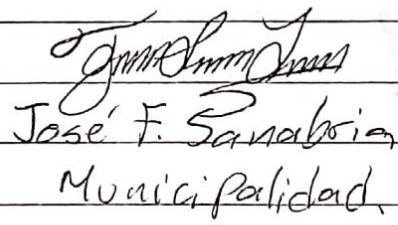 José F. Sanabria
Municipalidad.